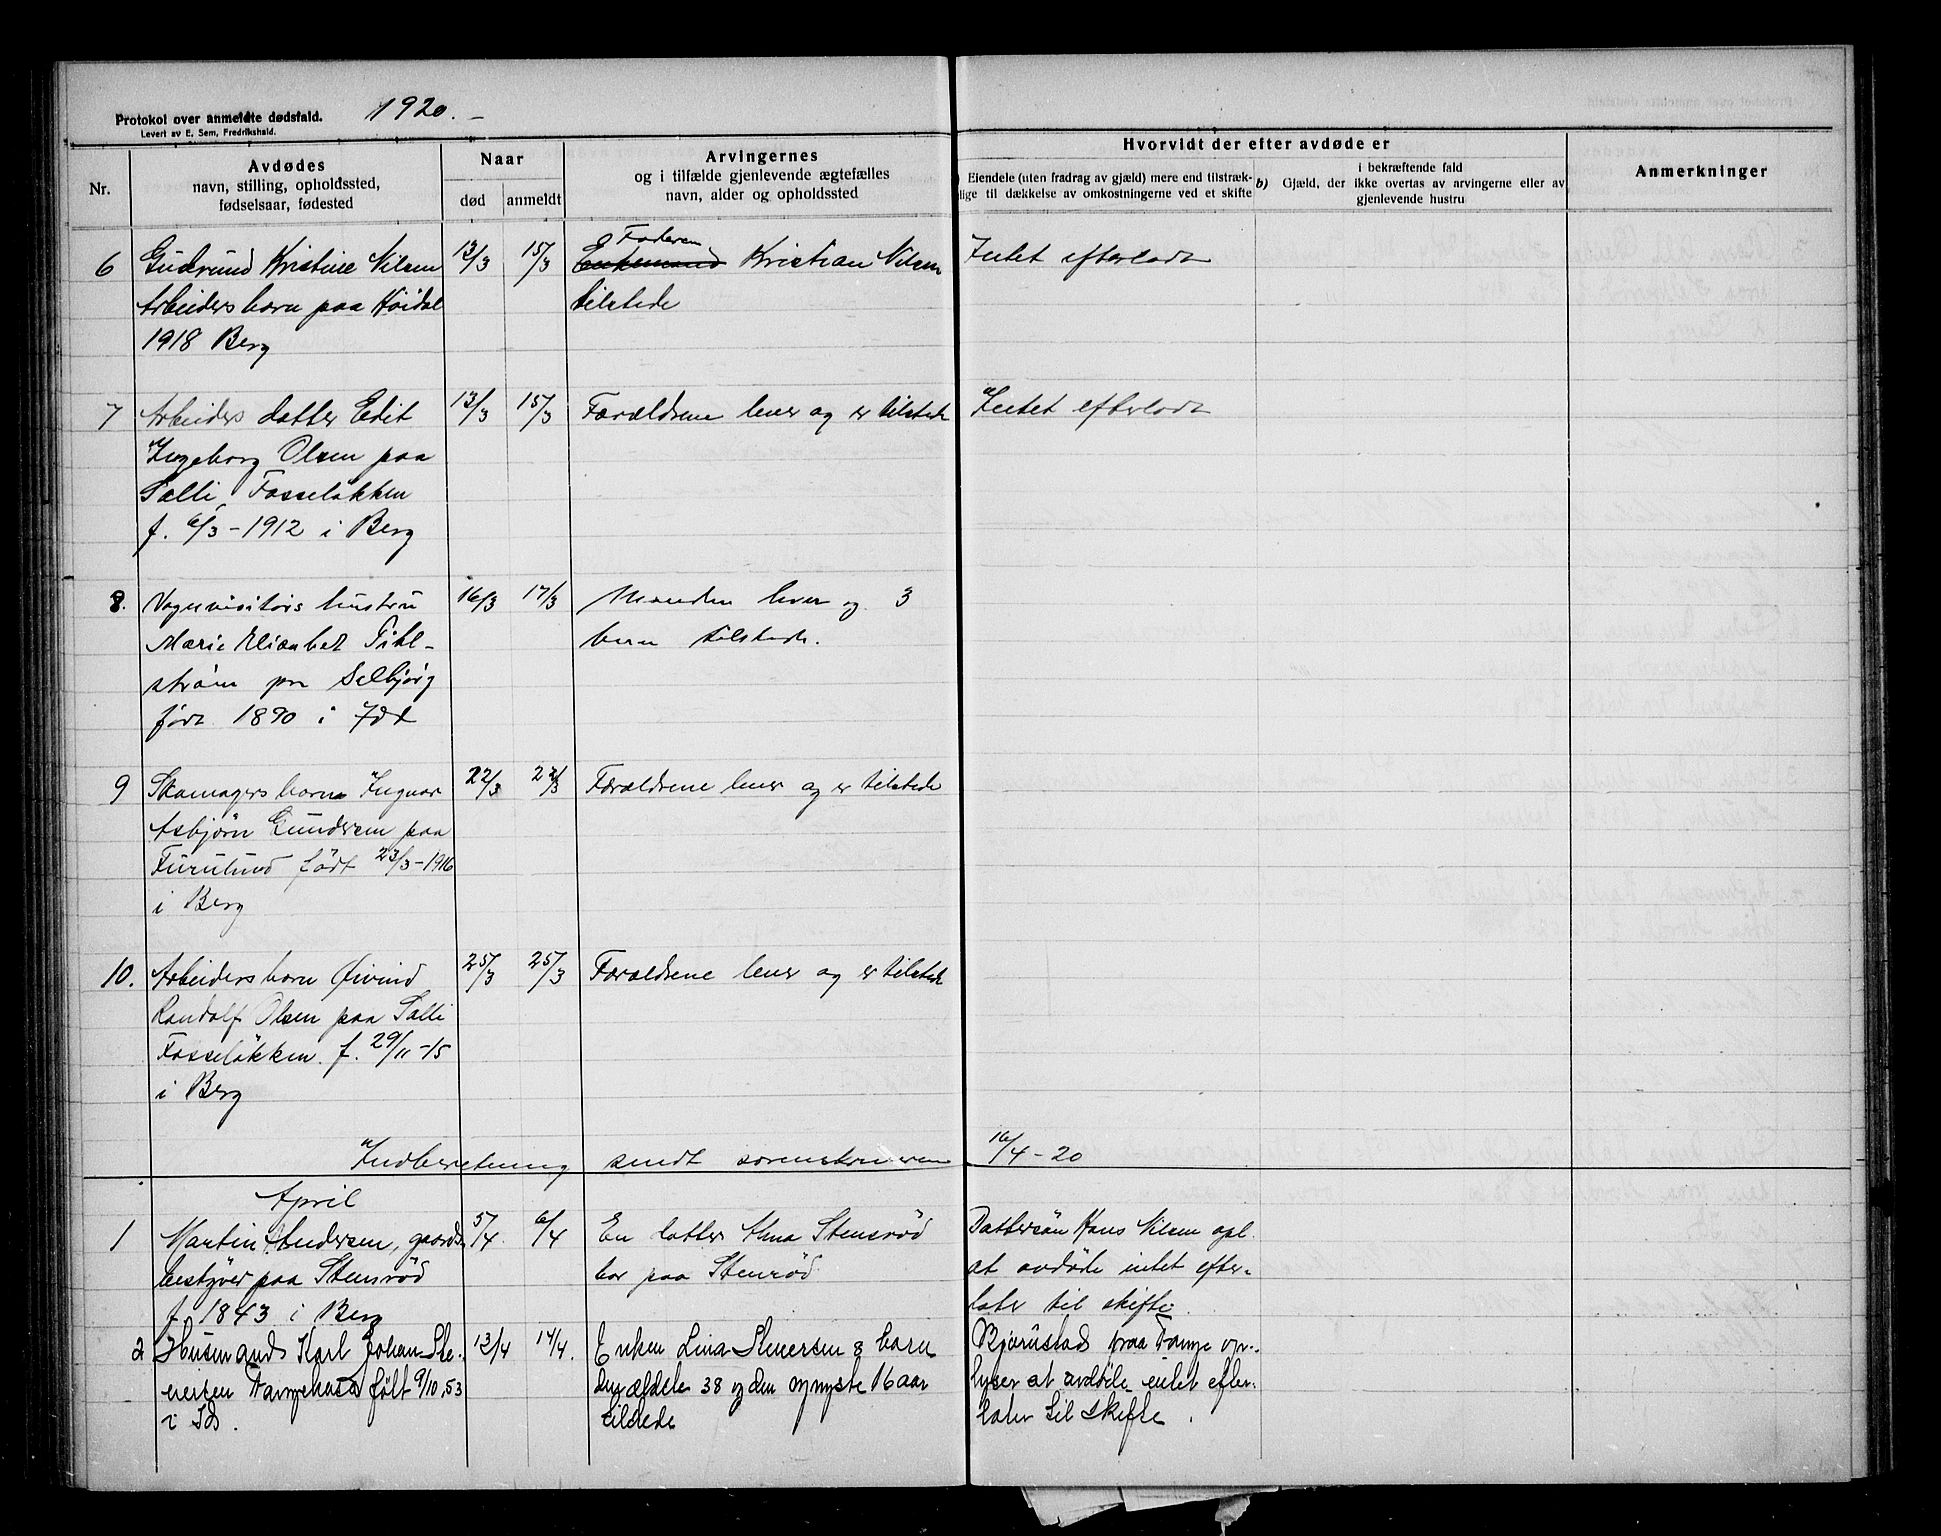 Protokol over anmeldte dødsfald. 1920. –
Levert av E. Sem, Fredrikshald.
Nr.
Avdødes
navn, stilling, opholdssted,
fødselsaar, fødested
Naar
død anmeldt
Arvingernes
og i tilfælde gjenlevende ægtefælles
navn, alder og opholdssted
Hvorvidt der efter avdøde er
Eiendele (uten fradrag av gjæld) mere end tilstræk-
lige til dækkelse av omkostningerne ved et skifte
b)
i bekræftende fald
Gjæld, der ikke overtas av arvingerne eller av
gjenlevende hustru
Anmerkninger
6 Gudrund Kristine Nilsen 13/3 15/3 Faderen Enkemand Kristian Nilsen Intet efterladt
Arbeiders barn paa Høidal tilstede
1918 Berg
7 Arbeiders datter Edit 13/3 15/3 Forældrene lever og er tilstede Intet efterladt
Ingeborg Olsen paa
Salli, Fosseløkken
f. 6/3 – 1912 i Berg
8. Vognvisitørs hustru 16/3 17/3 Manden lever og 3
Marie Elisabet Pihl- barn tilstede.
strøm paa Selbjørg
født 1890 i Idd
9 Skomagers barn Ingvar 22/3 Forældrene lever og er tilstede
Asbjørn Gundersen paa
Furulund født 23/3 – 1916
i Berg
10. Arbeiders barn Øivind 25/3 25/3 Forældrene lever og er tilstede
Randolf Olsen paa Salli
Fosseløkken. f. 29/11 – 15
i Berg
Indberetning sendt sorenskriveren 16/4 – 20
April
1 Martin Andersen, gaards- 5/4 6/4 En datter Stensrød Dattersøn Hans Nilsen opl.
bestyrer paa Stensrød bor paa Stensrød at avdøde intet efter-
f. 1843 i Berg later til skifte.
2 Husmand Karl Johan Ste- 13/4 14/4. Enken Lina Stenersen 8 barn Bjørnstad paa Tanje op-
nersen født 9/10. 53 den ældste 38 og den yngste 16 aar lyser at avdøde intet efter-
i Id. tilstede later til skifte.